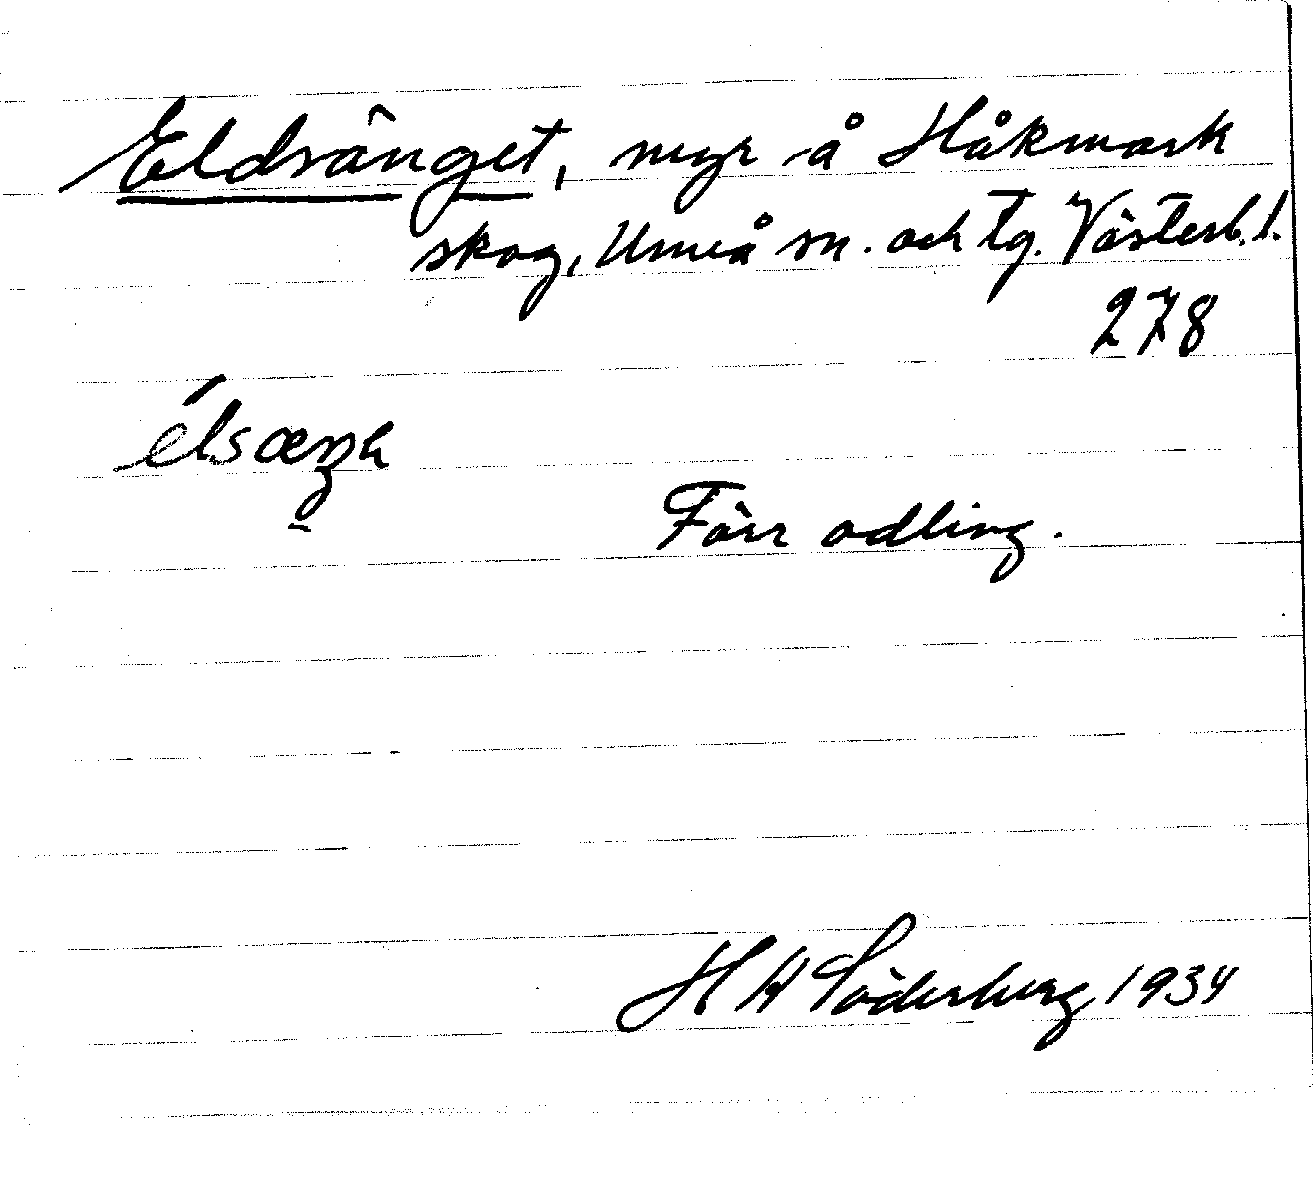 Eldsänget, myr å Håkmark
skog, Umeå sn. och tg. Västerb. l.
278
élsæŋa
Förr odling.
H W Söderberg 1934